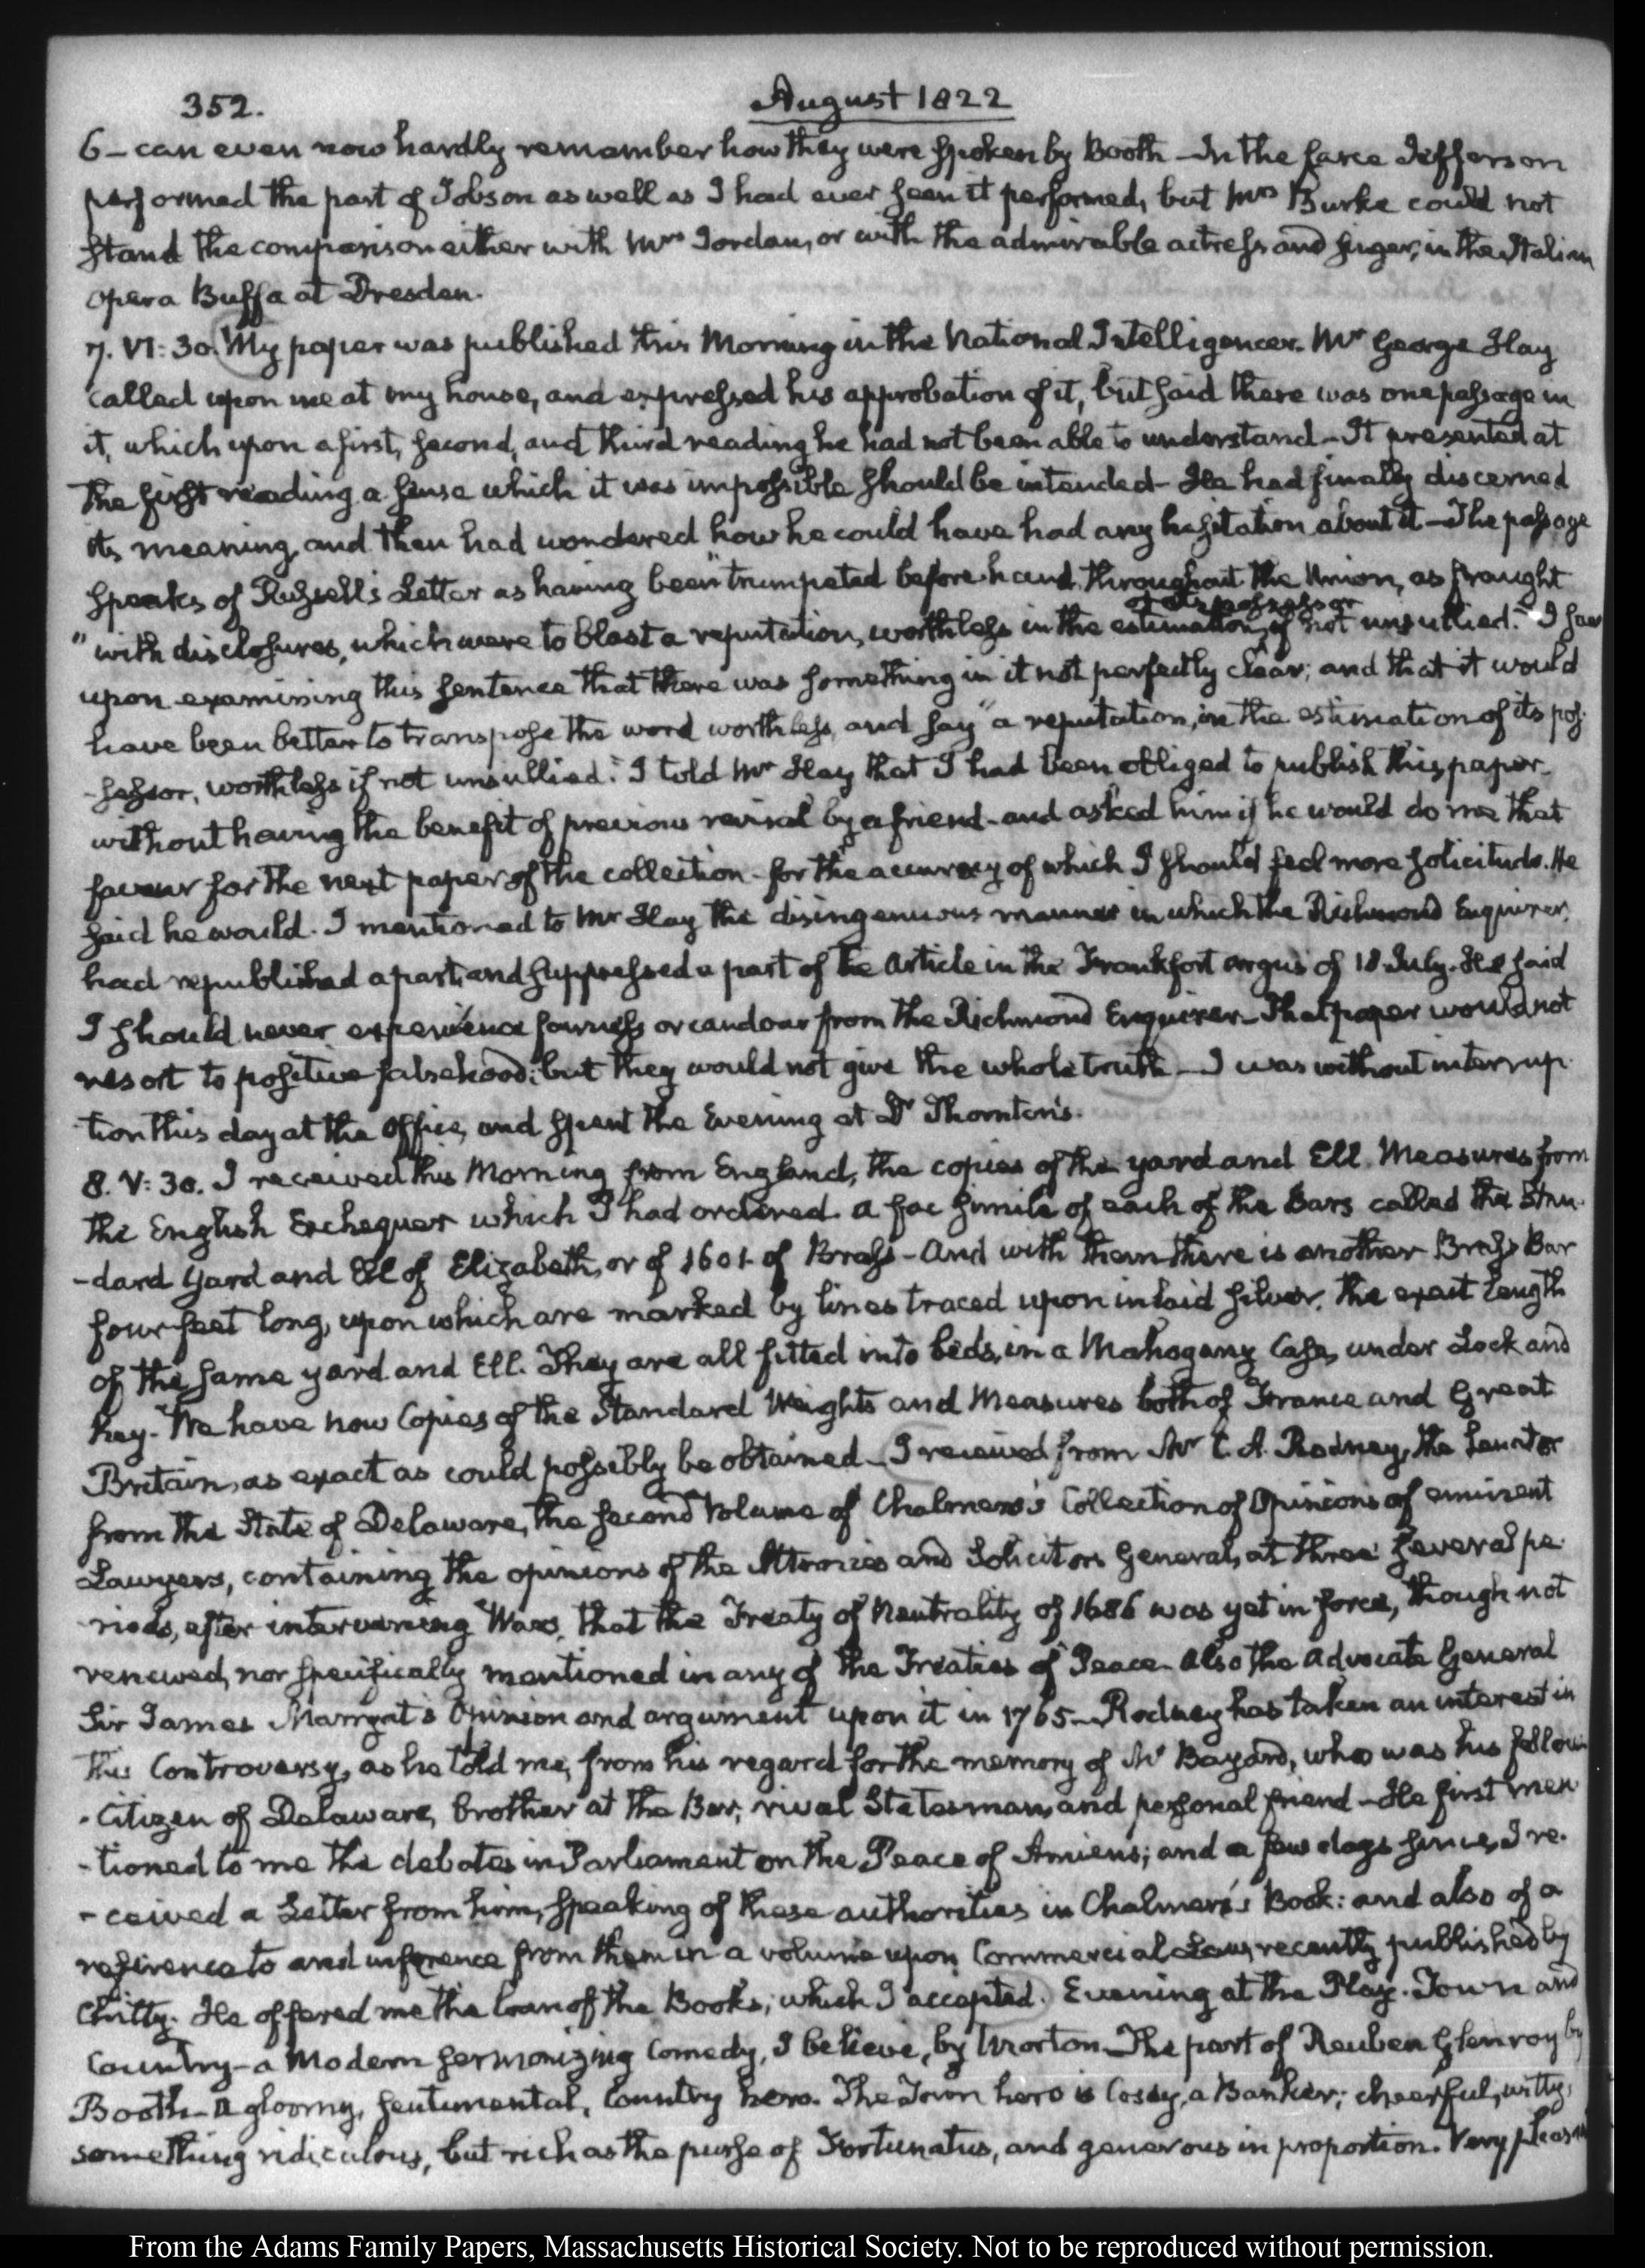 352.
August 1822
6 – can even now hardly remember how they were spoken by Booth – In the farce Jefferson
performed the part of Jobson as well as I had ever seen it performed, but Mrs Burke could not
stand the comparison either with Mrs Jordan, or with the admirable actress and singer, in the Italian
opera Buffa at Dresden.
7. VI: 30. My paper was published this Morning in the National Intelligencer. Mr George Hay
called upon me at my house, and expressed his approbation of it, but said there was one passage in
it, which upon a first, second, and third reading he had not been able to understand – It presented at
the first reading a sense which it was impossible should be intended – He had finally discerned
its meaning, and then had wondered how he could have had any hesitation about it – The passage
speaks of Russell's Letter as having been "trumpeted before-hand throughout the Union, as fraught
of its possessor
"with disclosures, which were to blast a reputation, worthless in the estimation, if not unsullied." I saw
upon examining this sentence that there was something in it not perfectly clear; and that it would
have been better to transpose the word worthless, and say "a reputation, in the estimation of its pos-
-sessor, worthless if not unsullied." I told Mr Hay that I had been obliged to publish this paper
without having the benefit of previous revisal by a friend – and asked him if he would do me that
favour for the next paper of the collection – for the accuracy of which I should feel more solicitude. He
said he would. I mentioned to Mr Hay the disingenuous manner in which the Richmond Enquirer,
had republished a part, and suppressed a part of the Article in the Frankfort argus of 18 July. He said
I should never experience fairness or candour from the Richmond Enquirer – That paper would not
resort to positive falsehood; but they would not give the whole truth – I was without interrup-
-tion this day at the Office, and spent the Evening at Dr Thornton's.
8. V: 30. I received this Morning from England, the copies of the yard and Ell Measures from
the English Exchequer which I had ordered. a fac simile of each of the Bars called the Stan-
-dard Yard and Ell of Elizabeth, or of 1601. of Brass – And with them there is another Brass Bar
four feet long, upon which are marked by lines traced upon inlaid silver, the exact length
of the same yard and Ell. They are all fitted into beds, in a Mahogany Case, under Lock and
key. We have now Copies of the Standard Weights and Measures both of France and Great
Britain, as exact as could possibly be obtained – I received from Mr C. A. Rodney, the Senator
from the State of Delaware, the second Volume of Chalmers's Collection of Opinions of eminent
Lawyers, containing the opinions of the Attornies and Solicitors General, at three several pe-
-riods, after intervening Wars, that the Treaty of Neutrality of 1686 was yet in force, though not
renewed, nor specifically mentioned in any of the Treaties of Peace – also the Advocate General
Sir James Marryat's Opinion and argument upon it in 1765 – Rodney has taken an interest in
this Controversy, as he told me, from his regard for the memory of Mr Bayard, who was his fellow
-Citizen of Delaware, brother at the Bar, rival Statesman, and personal friend – He first men
-tioned to me the debates in Parliament on the Peace of Amiens; and a few days since, I re-
-ceived a Letter from him, speaking of these authorities in Chalmers's Book: and also of a
reference to and inference from them in a volume upon Commercial Law, recently published by
Chitty. He offered me the loan of the Books; which I accepted. Evening at the Play. Town and
Country – a Modern sermonizing Comedy, I believe, by Morton – The part of Reuben Glenroy by
Booth – A gloomy, sentimental, Country hero. The Town hero is Cosey, a Banker; cheerful, witty,
something ridiculous, but rich as the purse of Fortunatus, and generous in proportion. Very pleasa
From the Adams Family Papers, Massachusetts Historical Society. Not to be reproduced without permission.